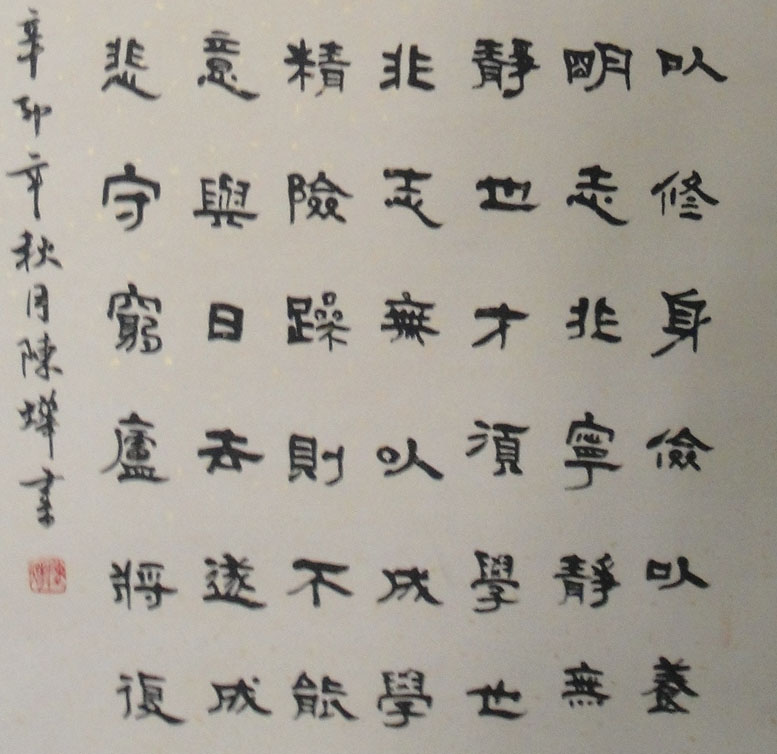 以修身儉以養
明志非寧靜無
靜也才須學也
非志無以成學
精險躁則不能
意與日去遂成
悲守窮廬將復
辛卯年秋月陳書